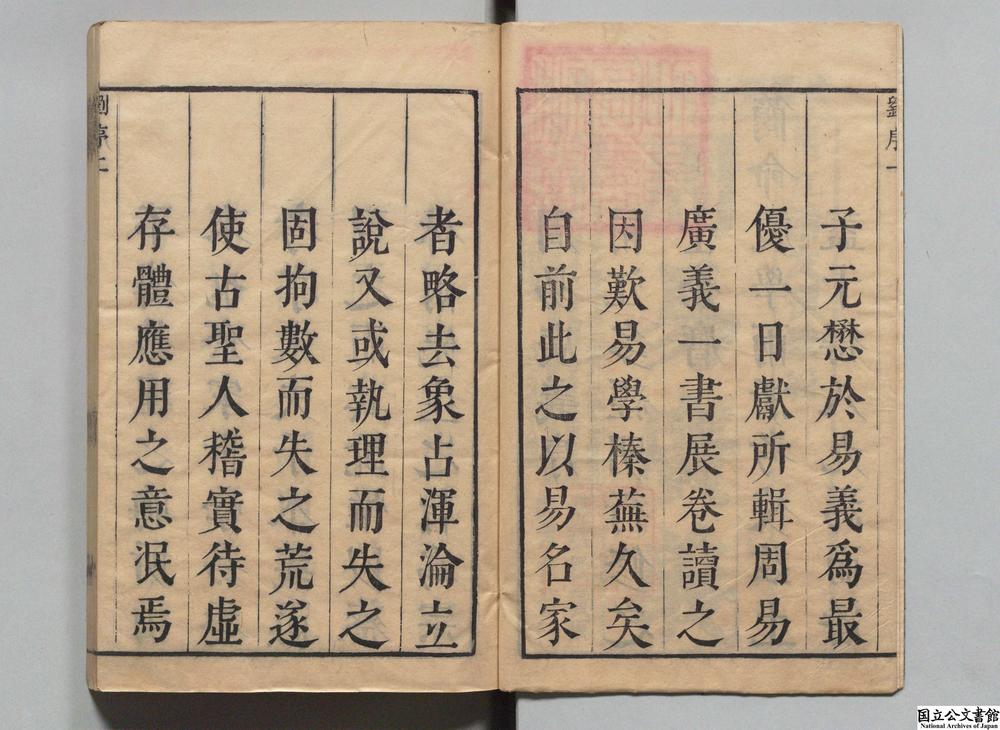 劉序一
子元懋於易義爲最
優一日獻所輯周易
廣義一書展卷讀之
因歎易學榛蕪久矣
自前此之以易名家
者略去象占渾淪立
說又或執理而失之
固拘數而失之荒遂
使古聖人稽實待虛
存體應用之意泯焉
國立公文書館
National Archives of Japan